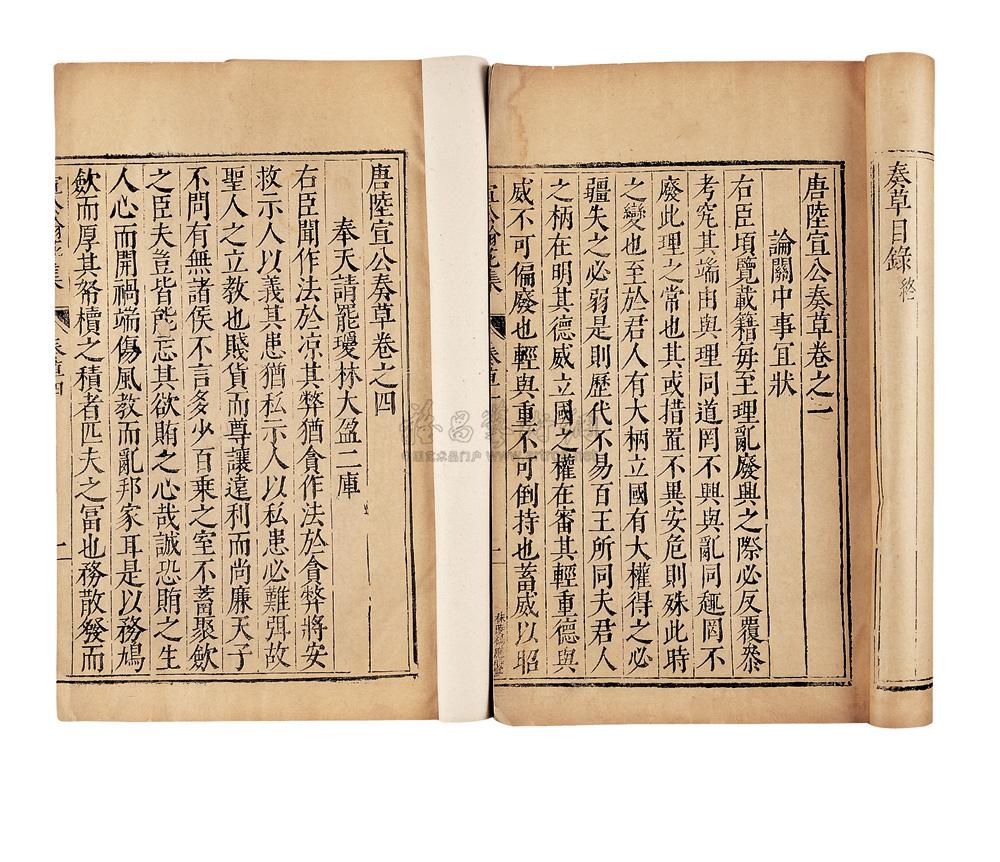 奏草目錄 終
唐陸宣公奏草卷之一
論關中事宜狀
右臣頃覽載籍每至理亂廢興之際必反覆叅
考究其端由與理同道罔不興與亂同趣罔不
廢此理之常也其或措置不異安危則殊此時
之變也至於君人有大柄立國有大權得之必
彊失之必弱是則歷代不易百王所同夫君人
之柄在明其德威立國之權在審其輕重德與
威不可偏廢也輕與重不可倒持也蓄威以昭
宣公翰苑集 奏草一 一
唐陸宣公奏草卷之四
奉天請罷瓊林大盈二庫
右臣聞作法於凉其弊猶貪作法於貪弊將安
救示人以義其患猶私示人以私患必難弭故
聖人之立教也賤貨而尊讓遠利而尚廉天子
不問有無諸侯不言多少百乘之室不蓄聚歛
之臣夫豈皆能忘其欲賄之心哉誠恐賄之生
人心而開禍端傷風教而亂邦家耳是以務鳩
歛而厚其帑櫝之積者匹夫之冨也務散發而
宣公翰苑集 奏草四 一
www.artron.net